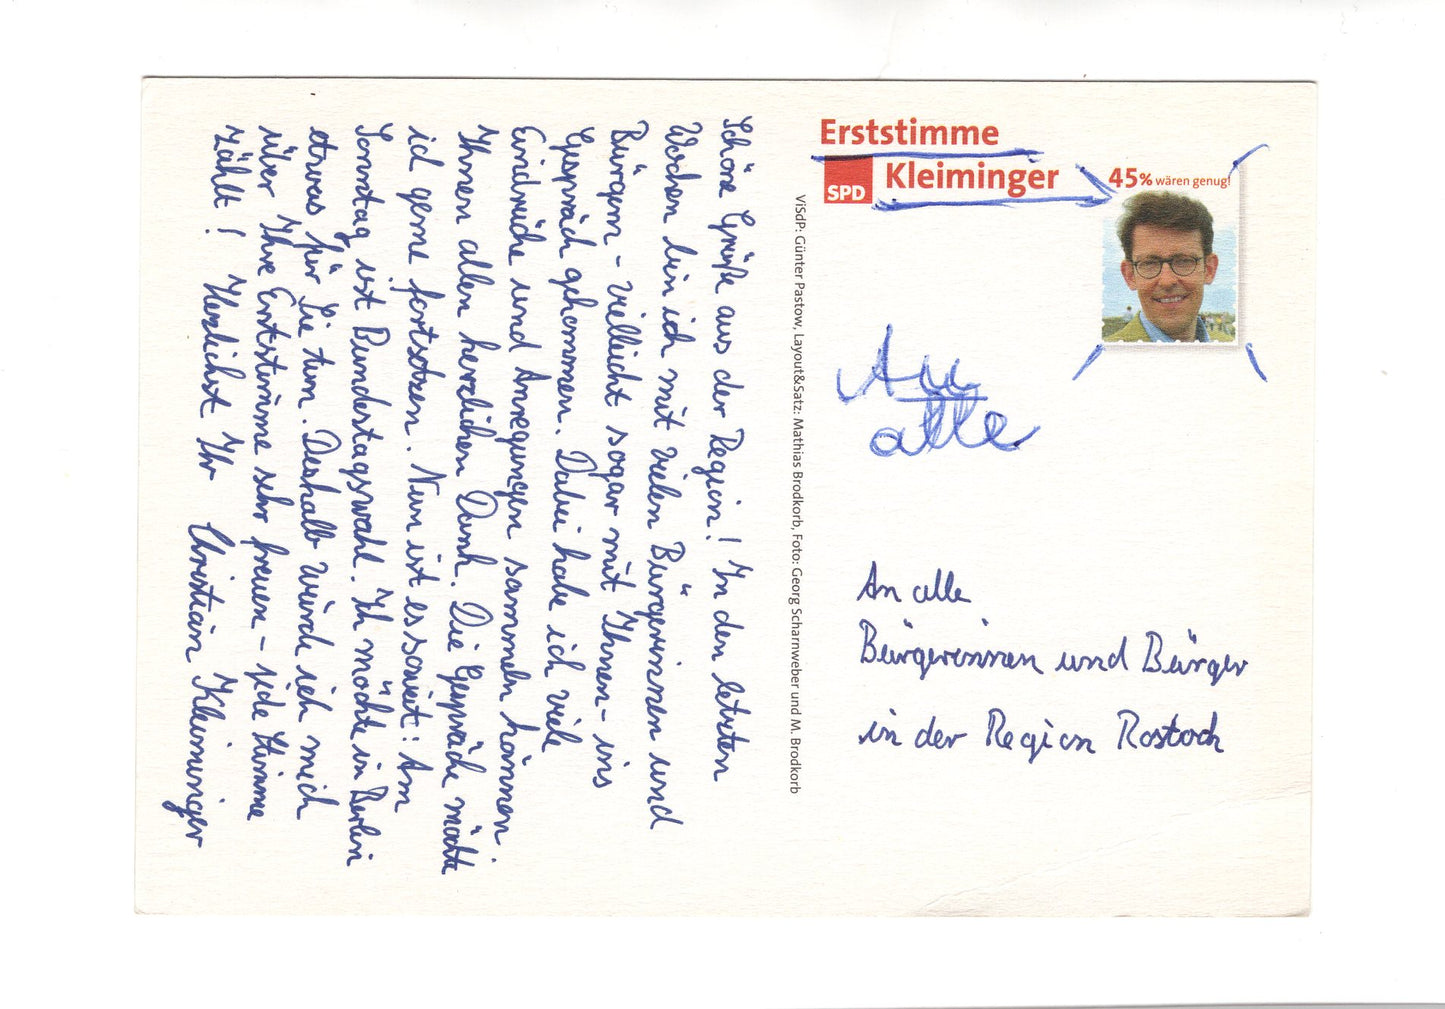 Schöne Grüße aus der Region! In den letzten
Wochen bin ich mit vielen Bürgerinnen und
Bürgern - vielleicht sogar mit Ihnen - ins
Gespräch gekommen. Dabei habe ich viele
Eindrücke und Anregungen sammeln können.
Ihnen allen herzlichen Dank. Die Gespräche möchte
ich gerne fortsetzen. Nun ist es soweit: Am
Sonntag ist Bundestagswahl. Ich möchte in Berlin
etwas für Sie tun. Deshalb würde ich mich
über Ihre Erststimme sehr freuen - jede Stimme
zählt! Herzlichst Ihr Christian Kleiminger
ViSdP: Günter Pastow, Layout&Satz: Mathias Brodkorb, Foto: Georg Scharnweber und M. Brodkorb
Erststimme
SPD Kleiminger
45% wären genug!
An
alle
An alle
Bürgerinnen und Bürger
in der Region Rostock